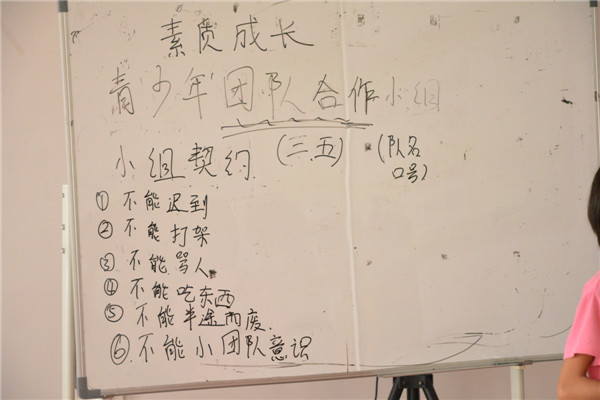 素质成长
青少年团队合作小组
小组契约 (三.五) (队名
口号)
① 不能迟到
② 不能打架
③ 不能骂人
④ 不能吃东西
⑤ 不能半途而废.
⑥ 不能小团队意识